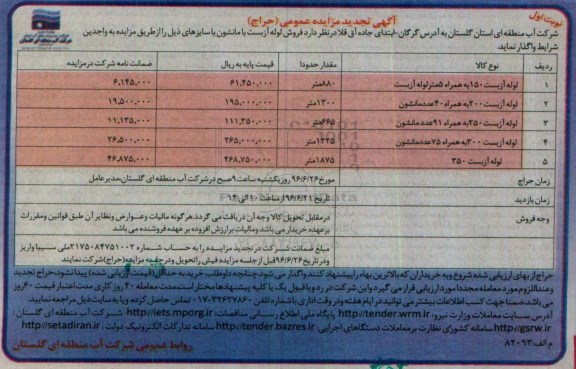 نوبت اول
آگهی تجدید مزایده عمومی (حراج)
شرکت آب منطقه ای استان گلستان به آدرس گرگان-ابتدای جاده آق قلا در نظر دارد فروش لوله آزبست با مانشون با سایزهای ذیل را از طریق مزایده به واجدین
شرایط واگذار نماید.
ردیف نوع کالا مقدار حدودا قیمت پایه به ریال ضمانت نامه شرکت در مزایده
۱ لوله آزبست ۱۵۰ به همراه ۵ متر لوله آزبست ۸۸۰ متر ۶۱,۴۵۰,۰۰۰ ۶,۱۴۵,۰۰۰
۲ لوله آزبست ۲۰۰ به همراه ۴۰ عدد مانشون ۱۳۰۰ متر ۱۹۵,۰۰۰,۰۰۰ ۱۹,۵۰۰,۰۰۰
۳ لوله آزبست ۲۵۰ به همراه ۹۱ عدد مانشون ۶۶۵ متر ۱۱۱,۳۵۰,۰۰۰ ۱۱,۱۳۵,۰۰۰
۴ لوله آزبست ۳۰۰ به همراه ۷۵ عدد مانشون ۱۳۳۵ متر ۲۶۵,۰۰۰,۰۰۰ ۲۶,۵۰۰,۰۰۰
۵ لوله آزبست ۳۵۰ ۱۸۷۵ متر ۴۶۸,۷۵۰,۰۰۰ ۴۶,۸۷۵,۰۰۰
زمان حراج مورخ ۹۶/۶/۲۶ روز یکشنبه ساعت ۹ صبح در شرکت آب منطقه ای گلستان، مدیر عامل
زمان بازدید تاریخ ۹۶/۶/۲۱ از ساعت ۱۰ الی ۱۴
وجه فروش در مقابل تحویل کالا وجه آن دریافت می گردد. هر گونه مالیات و عوارض و نظایر آن طبق قوانین و مقررات
بر عهده خریدار می باشد و مالیات بر ارزش افزوده بر عهده فروشنده می باشد
مبلغ ضمانت شرکت در تجدید مزایده را به حساب شماره ۲۱۷۵۰۸۴۷۵۱۰۰۲ ملی سیبا واریز
و در تاریخ ۹۶/۶/۲۶ قبل از جلسه مزایده فیش را تحویل و در جلسه مزایده (حراج) شرکت نمایند
حراج از بهای ارزیابی شده شروع و به خریداران که بالاترین بهاء را پیشنهاد کنند واگذار می شود چنانچه داوطلب خرید به حداقل (قیمت ارزیابی شده) پیدا نشود، حراج تجدید
وعند اللزوم مورد معامله مجددا مورد ارزیابی قرار می گیرد و این شرکت در رد و یا قبول یک یا کلیه پیشنهادها مختار است. مدت معامله ۴۰ روز کاری مدت اعتبار قیمت ۶۰ روز
می باشد. ضمنا جهت کسب اطلاعات بیشتر می توانید در ایام هفته و در وقت اداری با شماره تلفن ۳۲۶۲۷۸۶۰-۰۱۷ تماس حاصل کرده و یا به سایت ذیل مراجعه نمایید.
آدرس سایت معاملات وزارت نیرو: http//tender.wrm.ir پایگاه ملی اطلاع رسانی مناقصات: http//iets.mporg.ir شرکت آب منطقه ای گلستان:
http//gsrw.ir سامانه کشوری نظارت بر معاملات دستگاهای اجرایی: http//tender.bazres.ir سامانه تدارکات الکترونیک دولت: http//setadiran.ir
م الف: ۸۲۰۹۳
روابط عمومی شرکت آب منطقه ای گلستان